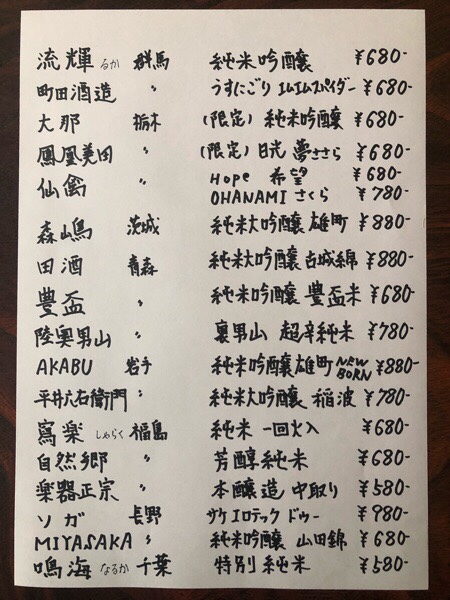 流輝 るか 群馬 純米吟醸 ¥680-
町田酒造 〃 うすにごり エムエムスパイダー ¥680-
大那 栃木 (限定) 純米吟醸 ¥680-
鳳凰美田 〃 (限定) 日光 夢ささら ¥680-
仙禽 〃 Hope 希望 ¥680-
OHANAMI さくら ¥780-
森嶋 茨城 純米大吟醸 雄町 ¥880-
田酒 青森 純米大吟醸 古城錦 ¥880-
豊盃 〃 純米吟醸 豊盃米 ¥680-
陸奥男山 〃 裏男山 超辛純米 ¥780-
AKABU 岩手 純米吟醸雄町 NEW BORN ¥880-
平井六右衛門 〃 純米大吟醸 稲波 ¥780-
寫楽 しゃらく 福島 純米 一回火入 ¥680-
自然郷 〃 芳醇純米 ¥680-
楽器正宗 〃 本醸造 中取り ¥580-
ソガ 長野 サケエロテック ドゥー ¥980-
MIYASAKA 〃 純米吟醸 山田錦 ¥680-
鳴海 なるか 千葉 特別純米 ¥580-